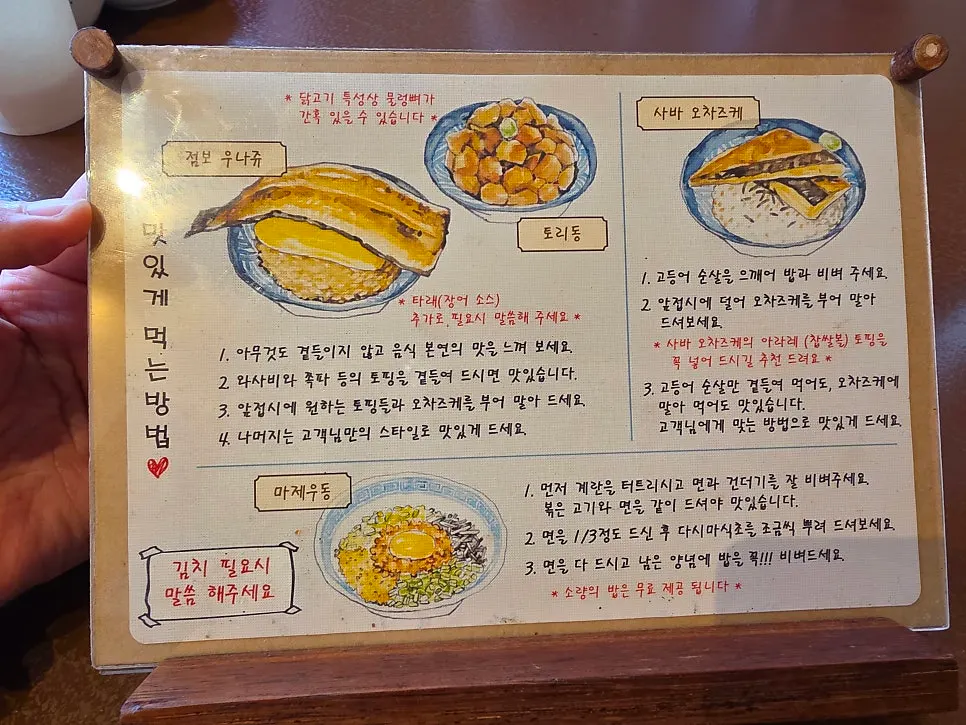 맛있게 먹는 방법
* 닭고기 특성상 물렁뼈가
간혹 있을 수 있습니다 *
점보 우나쥬
토리동
* 타래(장어 소스)
추가로 필요시 말씀해 주세요 *
1. 아무것도 곁들이지 않고 음식 본연의 맛을 느껴 보세요.
2. 와사비와 쪽파 등의 토핑을 곁들여 드시면 맛있습니다.
3. 앞접시에 원하는 토핑들과 오차즈케를 부어 말아 드세요.
4. 나머지는 고객님만의 스타일로 맛있게 드세요.
사바 오차즈케
1. 고등어 순살을 으깨어 밥과 비벼 주세요.
2. 앞접시에 덜어 오차즈케를 부어 말아
드셔보세요.
* 사바 오차즈케의 아라레 (찹쌀볼) 토핑을
꼭 넣어 드시길 추천 드려요 *
3. 고등어 순살만 곁들여 먹어도, 오차즈케에
말아 먹어도 맛있습니다.
고객님에게 맞는 방법으로 맛있게 드세요.
마제우동
1. 먼저 계란을 터트리시고 면과 건더기를 잘 비벼주세요.
볶은 고기와 면을 같이 드셔야 맛있습니다.
2. 면을 1/3정도 드신 후 다시마식초를 조금씩 뿌려 드셔보세요.
3. 면을 다 드시고 남은 양념에 밥을 꼭!!! 비벼드세요.
* 소량의 밥은 무료 제공 됩니다 *
김치 필요시
말씀 해주세요